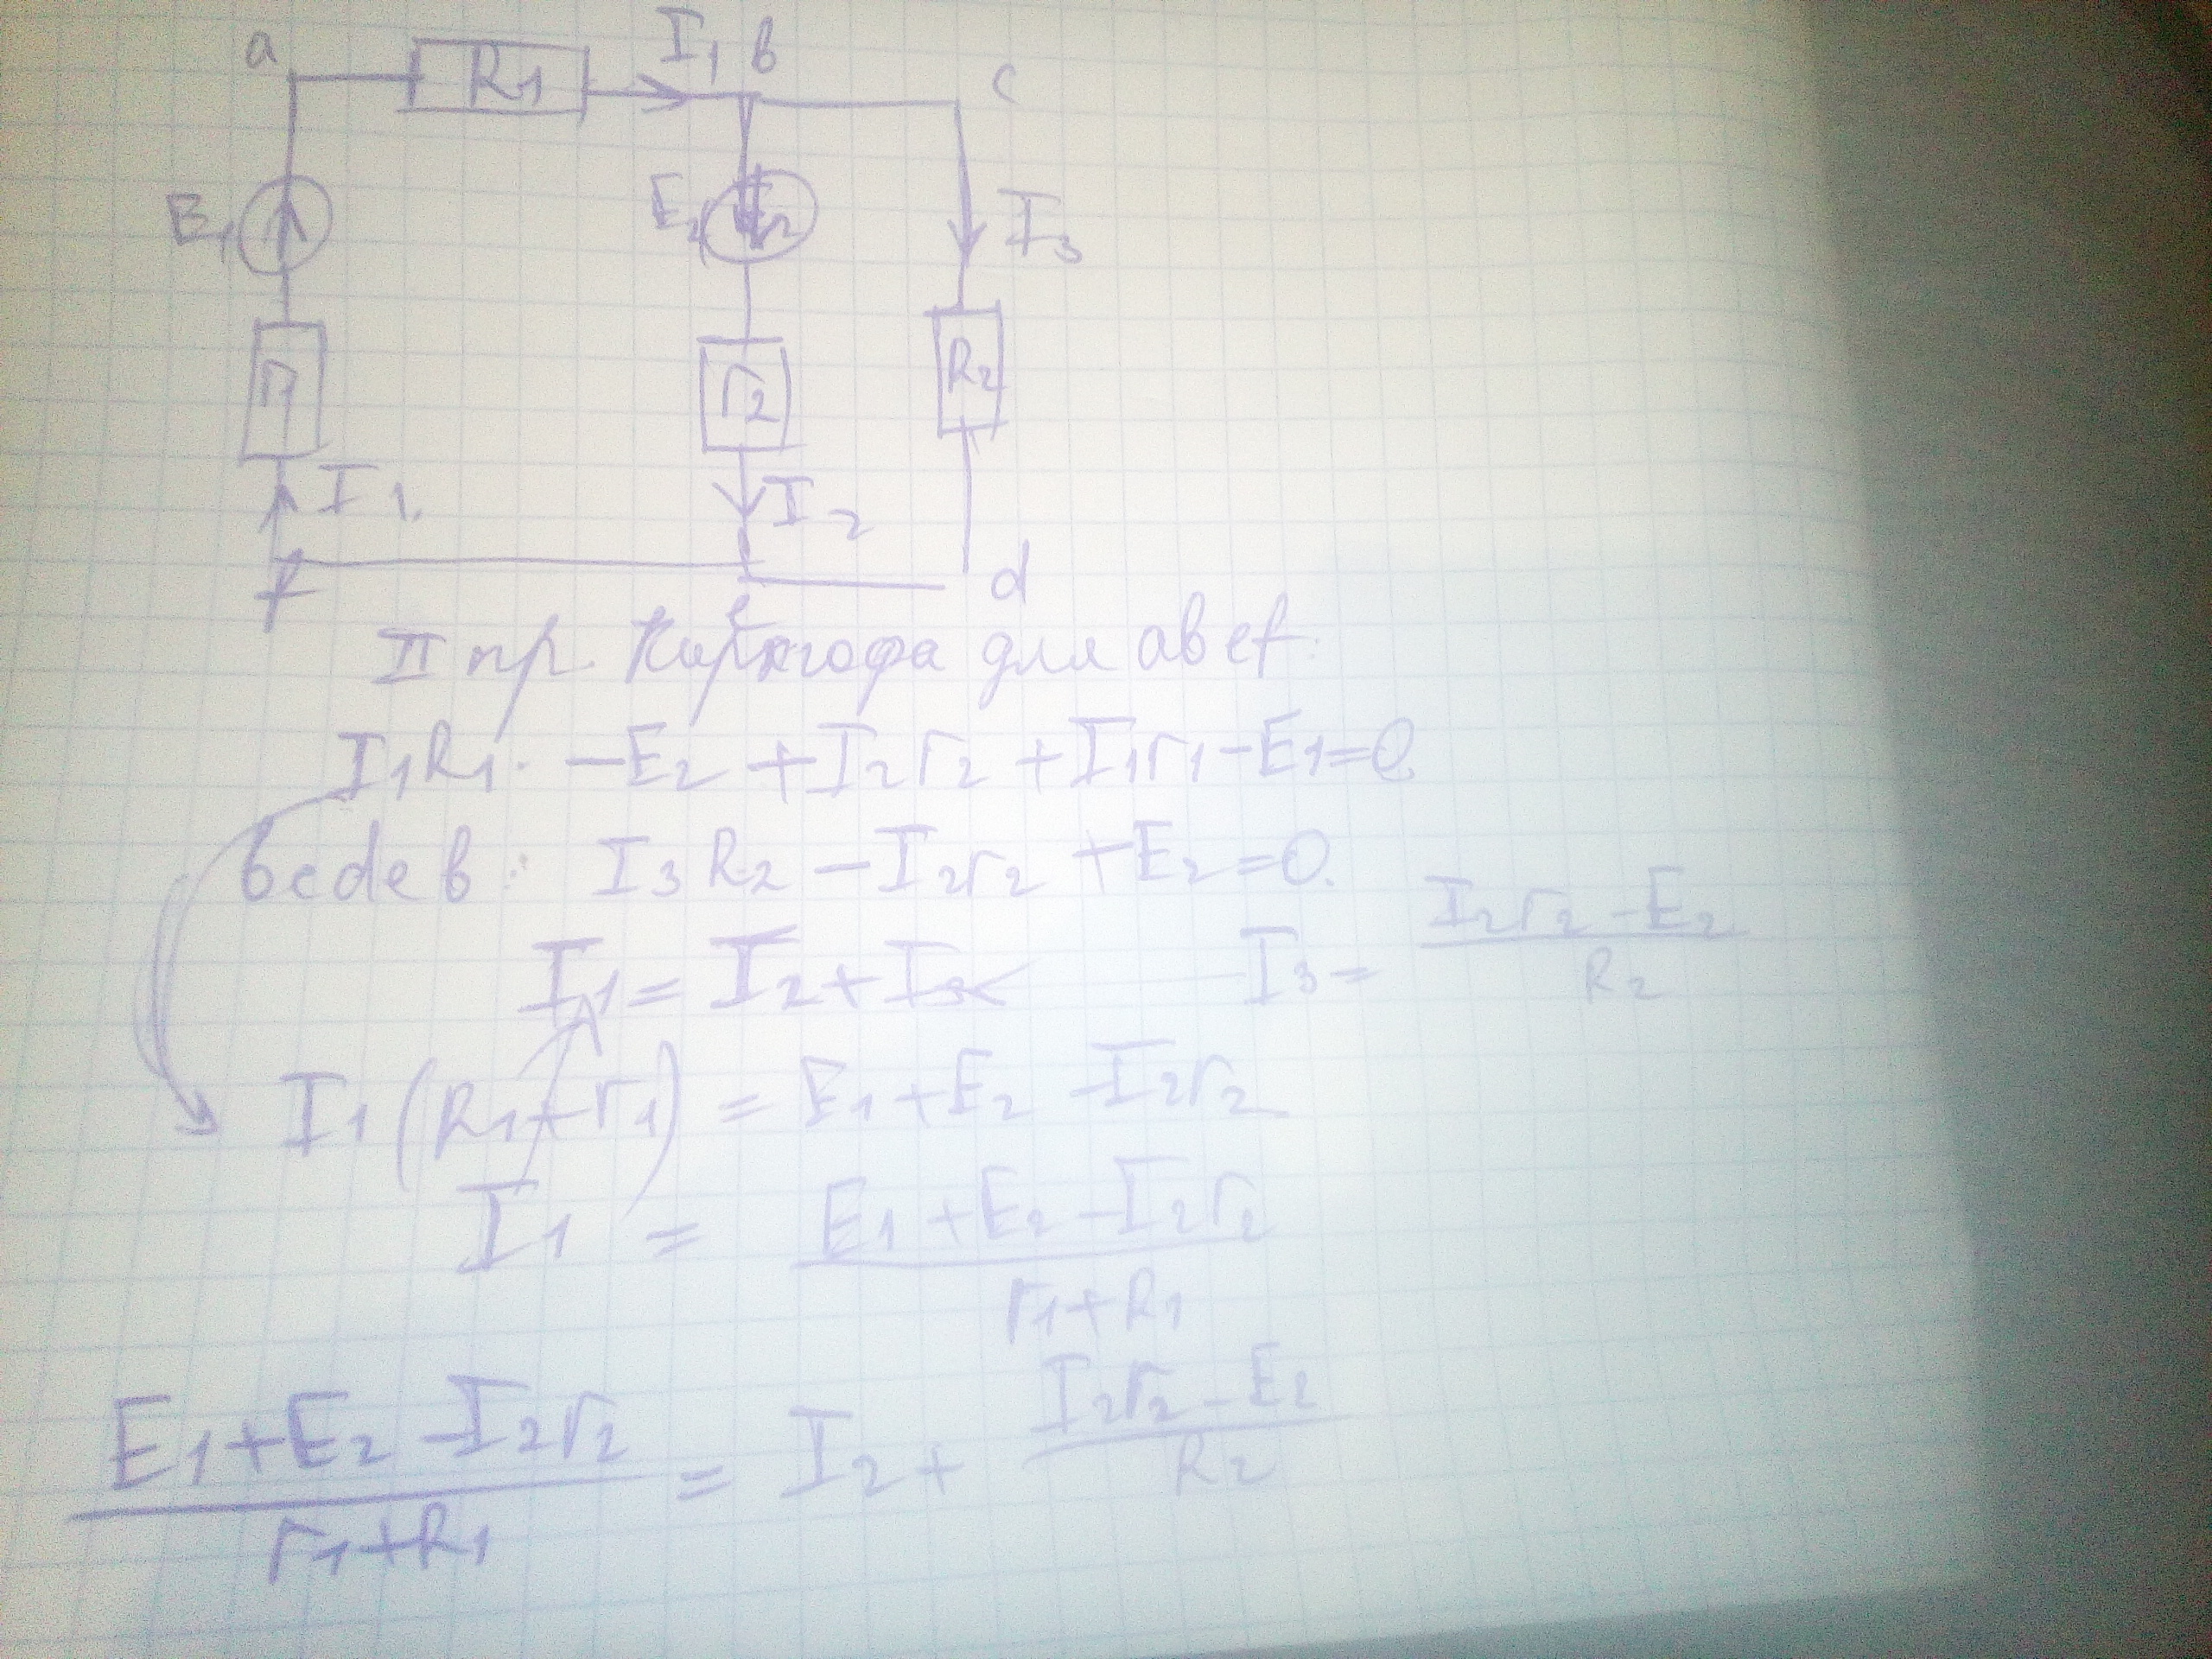 a R1 I1 в c
E1 E2 I3
r1 r2 R2
I1. I2
f e d
II пр. Кирхгофа для abef.
I1R1. -E2 +I2r2 +I1r1 -E1=0
bcdeb: I3R2 -I2r2 +E2=0.
I1 = I2 + I3 I3 = (I2r2 -E2)/R2
I1(R1+r1) = E1+E2 -I2r2
I1 = (E1+E2 -I2r2)/(r1+R1)
(E1+E2 -I2r2)/(r1+R1) = I2+ (I2r2 -E2)/R2